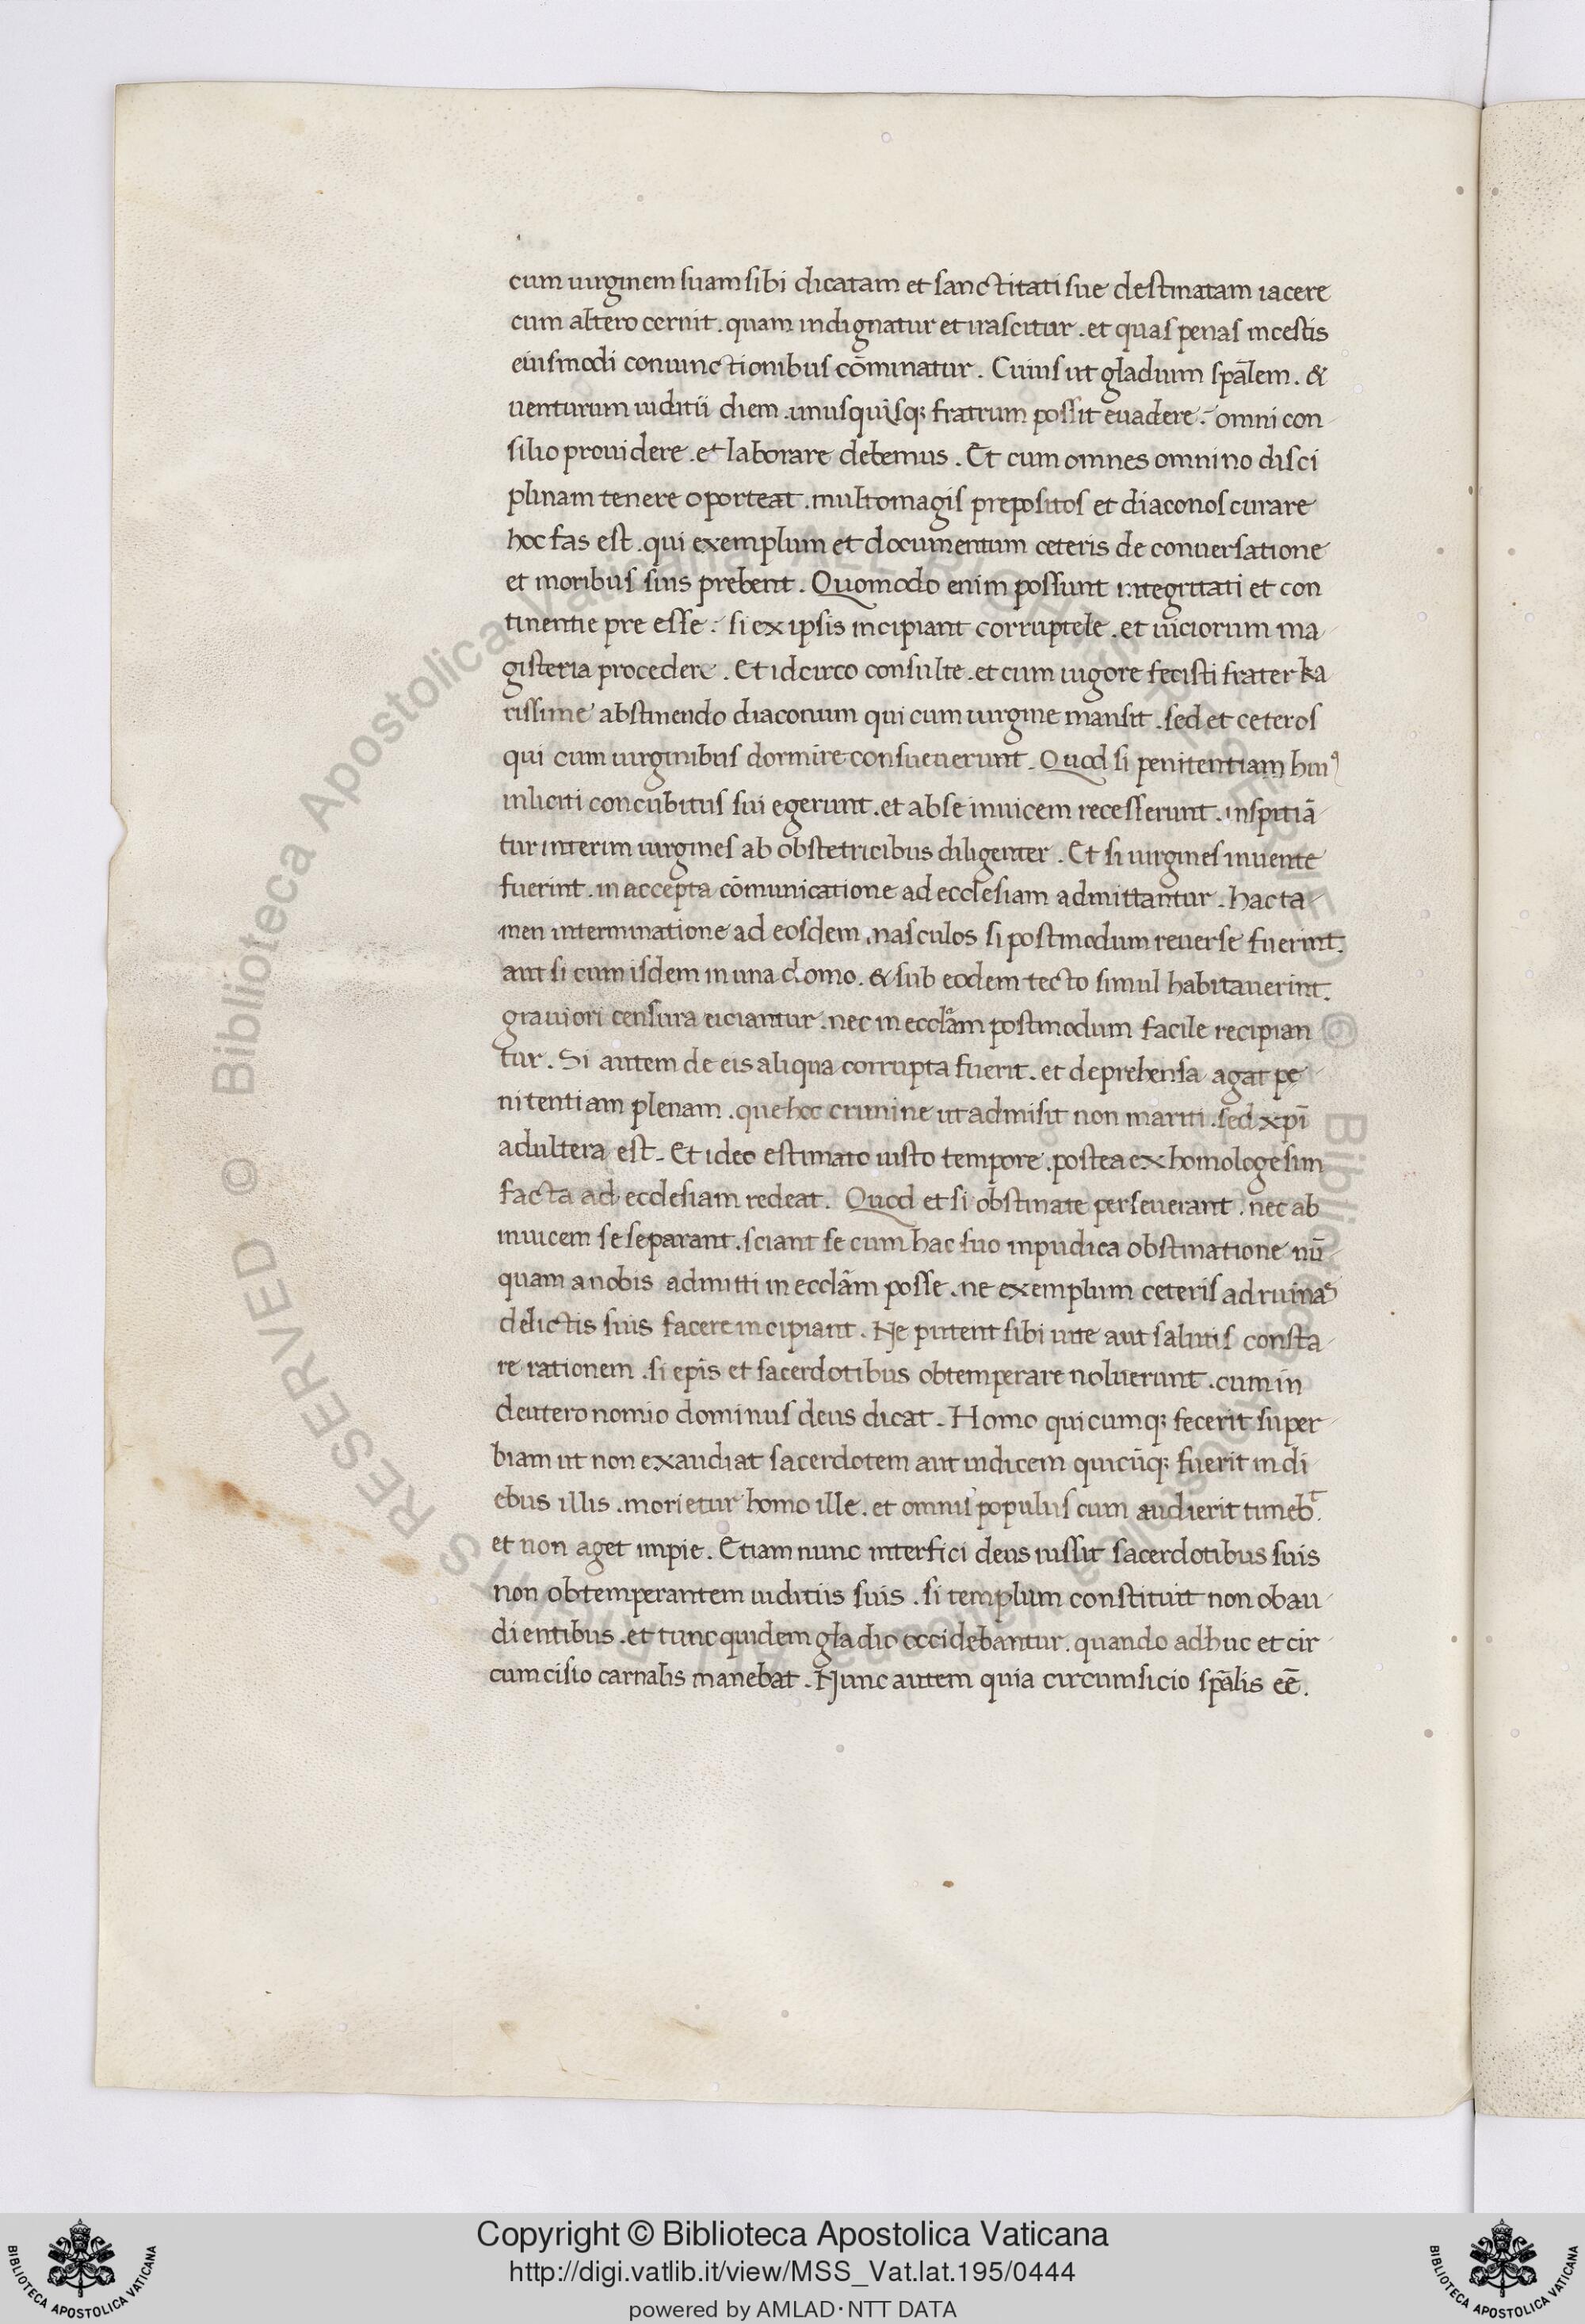 cum uirginem suam sibi dicatam et sanctitati sue destinatam iacere
cum altero cernit. quam indignatur et irascitur. et quas penas incestis
eiusmodi coniunctionibus cōminatur. Cuius ut gladium spālem. &
uenturum iuditii diem. unusquisq; fratrum possit euadere. omni con
silio prouidere. et laborare debemus. Et cum omnes omnino disci
plinam tenere oporteat. multomagis prepositos et diaconos curare
hoc fas est. qui exemplum et documentum ceteris de conuersatione
et moribus suis prebent. Quomodo enim possunt integritati et con
tinentie pre esse. si ex ipsis incipiant corruptele. et uiciorum ma
gisteria procedere. Et idcirco consulte. et cum uigore fecisti frater ka
rissime abstinendo diaconum qui cum uirgine mansit. sed et ceteros
qui cum uirginibus dormire consueuerunt. Quod si penitentiam hui⁹
inliciti concubitus sui egerunt. et abse inuicem recesserunt. inspitiā
tur interim uirgines ab obstetricibus diligenter. Et si uirgines inuente
fuerint. in accepta cōmunicatione ad ecclesiam admittantur. hac ta
men interminatione ad eosdem masculos si postmodum reuerse fuerint.
aut si cum isdem in una domo. & sub eodem tecto simul habitauerint.
grauiori censura eiciantur. nec in ecclām postmodum facile recipian
tur. Si autem de eis aliqua corrupta fuerit. et deprehensa agat pe
nitentiam plenam. que hoc crimine ut admisit non mariti. sed xpī
adultera est. Et ideo estimato iusto tempore. postea exhomologesim
facta ad ecclesiam redeat. Quod et si obstinate perseuerant. nec ab
inuicem se separant. sciant se cum hac suo inpudica obstinatione nū
quam a nobis admitti in ecclām posse. ne exemplum ceteris ad ruinas
delictis suis facere incipiant. Ne putent sibi uite aut salutis consta
re rationem. si epīs et sacerdotibus obtemperare noluerunt. cum in
deuteronomio dominus deus dicat. Homo quicumq; fecerit super
biam ut non exaudiat sacerdotem aut iudicem quicūq; fuerit in di
ebus illis. morietur homo ille. et omnis populus cum audierit timebt.
et non aget impie. Etiam nunc interfici deus iussit sacerdotibus suis
non obtemperantem iuditiis suis. si templum constituit non obau
dientibus. et tunc quidem gladio occidebantur. quando adhuc et cir
cumcisio carnalis manebat. Nunc autem quia circumsicio spālis eē.
© Biblioteca Apostolica Vaticana ALL RIGHTS RESERVED
Copyright © Biblioteca Apostolica Vaticana
http://digi.vatlib.it/view/MSS_Vat.lat.195/0444
powered by AMLAD·NTT DATA
BIBLIOTECA APOSTOLICA VATICANA
BIBLIOTECA APOSTOLICA VATICANA